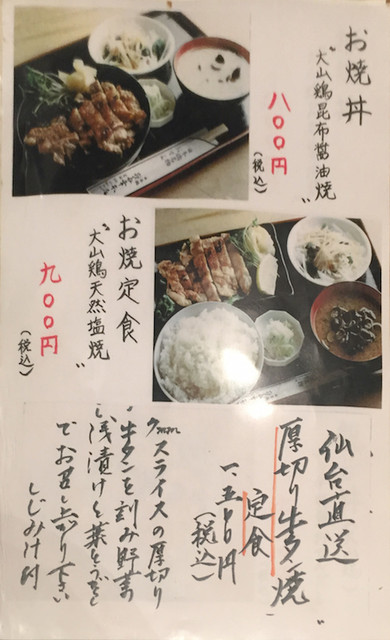 お焼丼
"大山鶏昆布醤油焼"
八〇〇円
(税込)
お焼定食
"大山鶏天然塩焼"
九〇〇円
(税込)
仙台直送
厚切り牛タン焼"
定食
一、五〇〇円
(税込)
スライスの厚切り
牛タンを刻み野菜
浅漬けと
でお召し上がり下さい
しじみ汁付